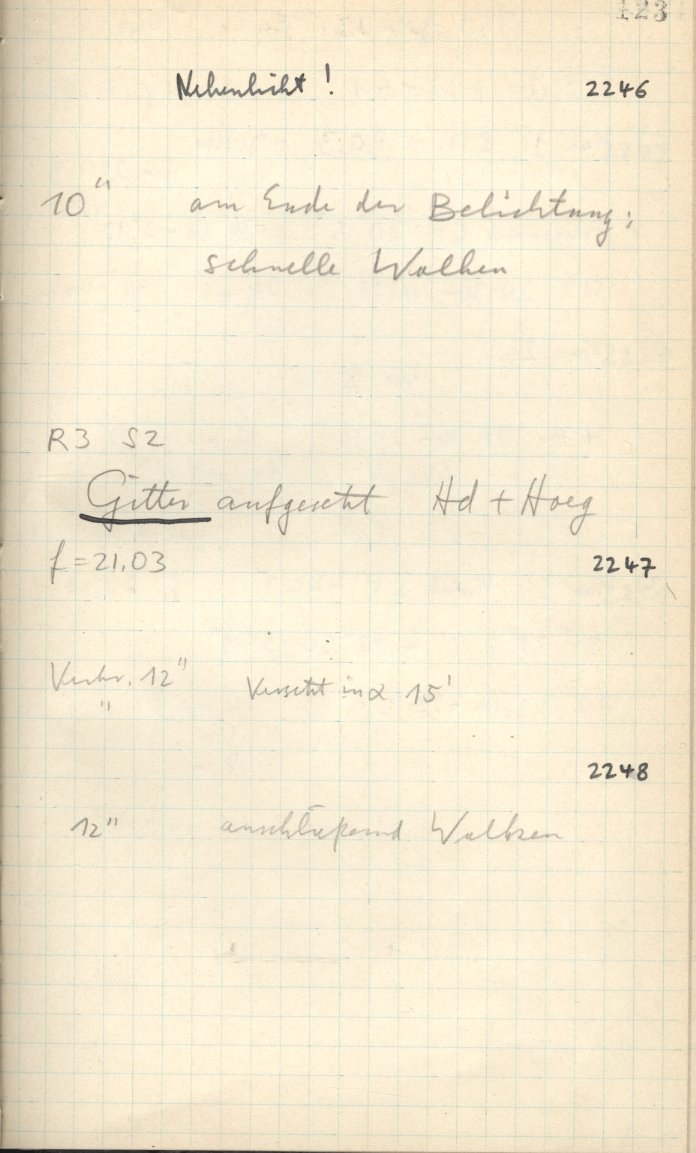 123
Nebenlicht! 2246
10" am Ende der Belichtung;
schnelle Wolken
R3 S2
Gitter aufgesetzt Hd + Hoeg
f = 21,03 2247
12" Versetzt in α 15'
"
2248
12" anschließend Wolken